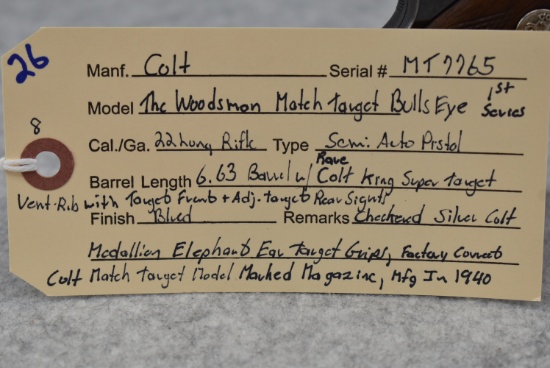 26
Manf. Colt Serial # MT7765
Model The Woodsman Match Target BullsEye 1st Series
8
Cal./Ga. 22 Long Rifle Type Semi Auto Pistol
Barrel Length 6.63 Barrel w/ Rare Colt King Super Target
Vent-Rib with Target Front + Adj. Target Rear Sight
Finish Blued Remarks Checkered Silver Colt
Medallion Elephant Ear Target Grips, Factory Correct
Colt Match Target Model Marked Magazine, Mfg In 1940